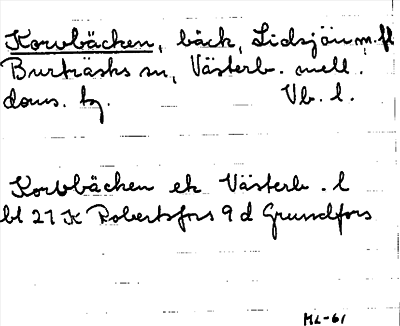 Korvbäcken, bäck, Lidsjön m.fl
Burträsks sn, Västerb. mell.
doms. tg. Vb. l.
Korvbäcken ek Västerb. l
bl 21 K Robertsfors 9 d Grundfors
ML-61